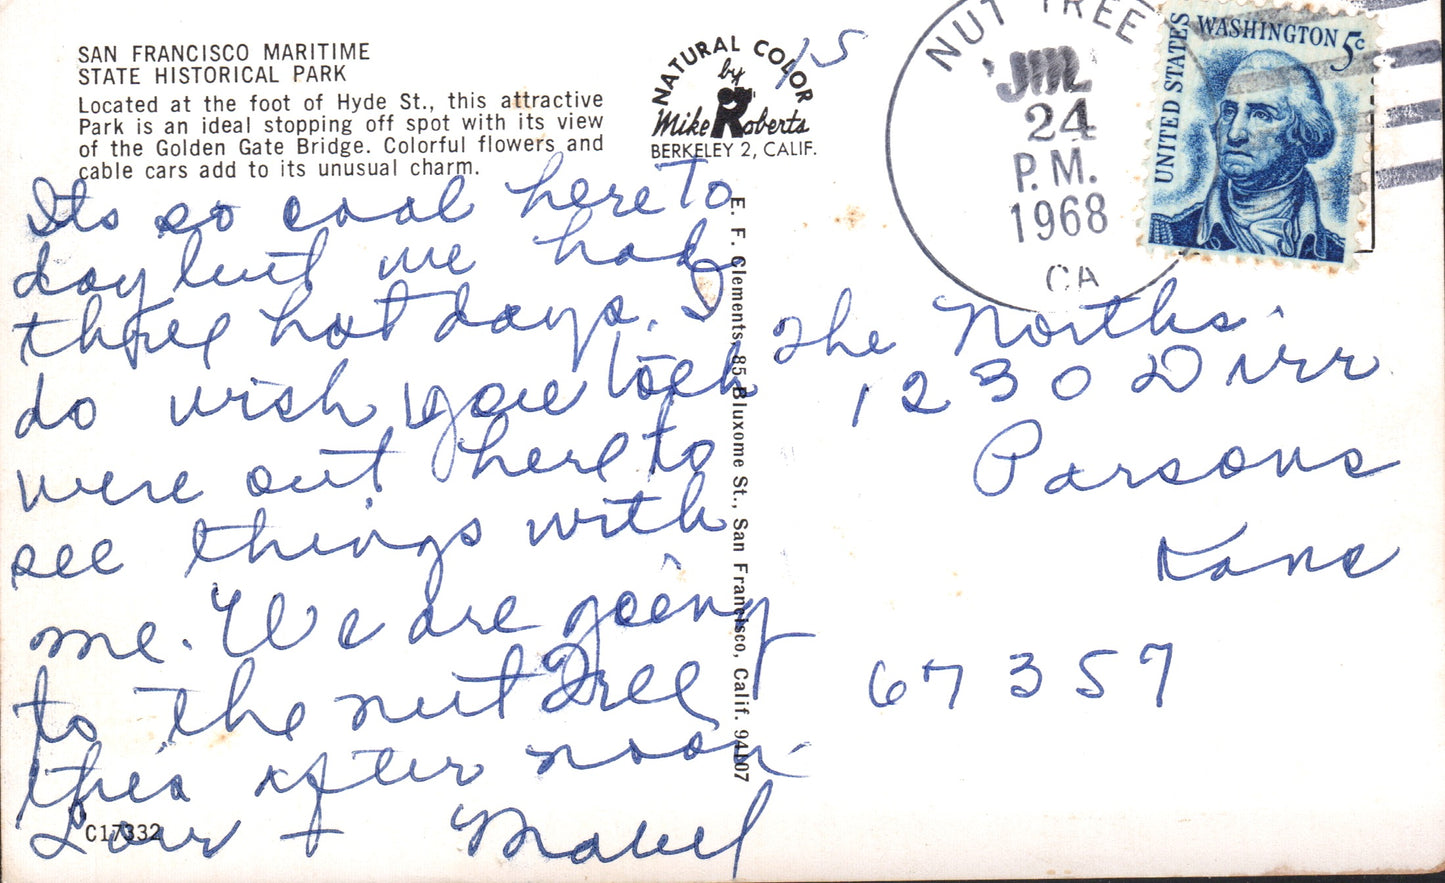 SAN FRANCISCO MARITIME
STATE HISTORICAL PARK
Located at the foot of Hyde St., this attractive
Park is an ideal stopping off spot with its view
of the Golden Gate Bridge. Colorful flowers and
cable cars add to its unusual charm.
NATURAL COLOR
by
Mike Roberts
BERKELEY 2, CALIF.
15
NUT TREE
JUL
24
P.M.
1968
CA
UNITED STATES
WASHINGTON 5c
Its so cool here to
day but we had
three hot days. I
do wish you both
were out here to
see things with
me. We are going
to the nut Tree
this after noon.
Lou + Mabel
C17332
E. F. Clements, 85 Bluxome St., San Francisco, Calif. 94107
The Norths.
1230 Dirr
Parsons
Kans
67357